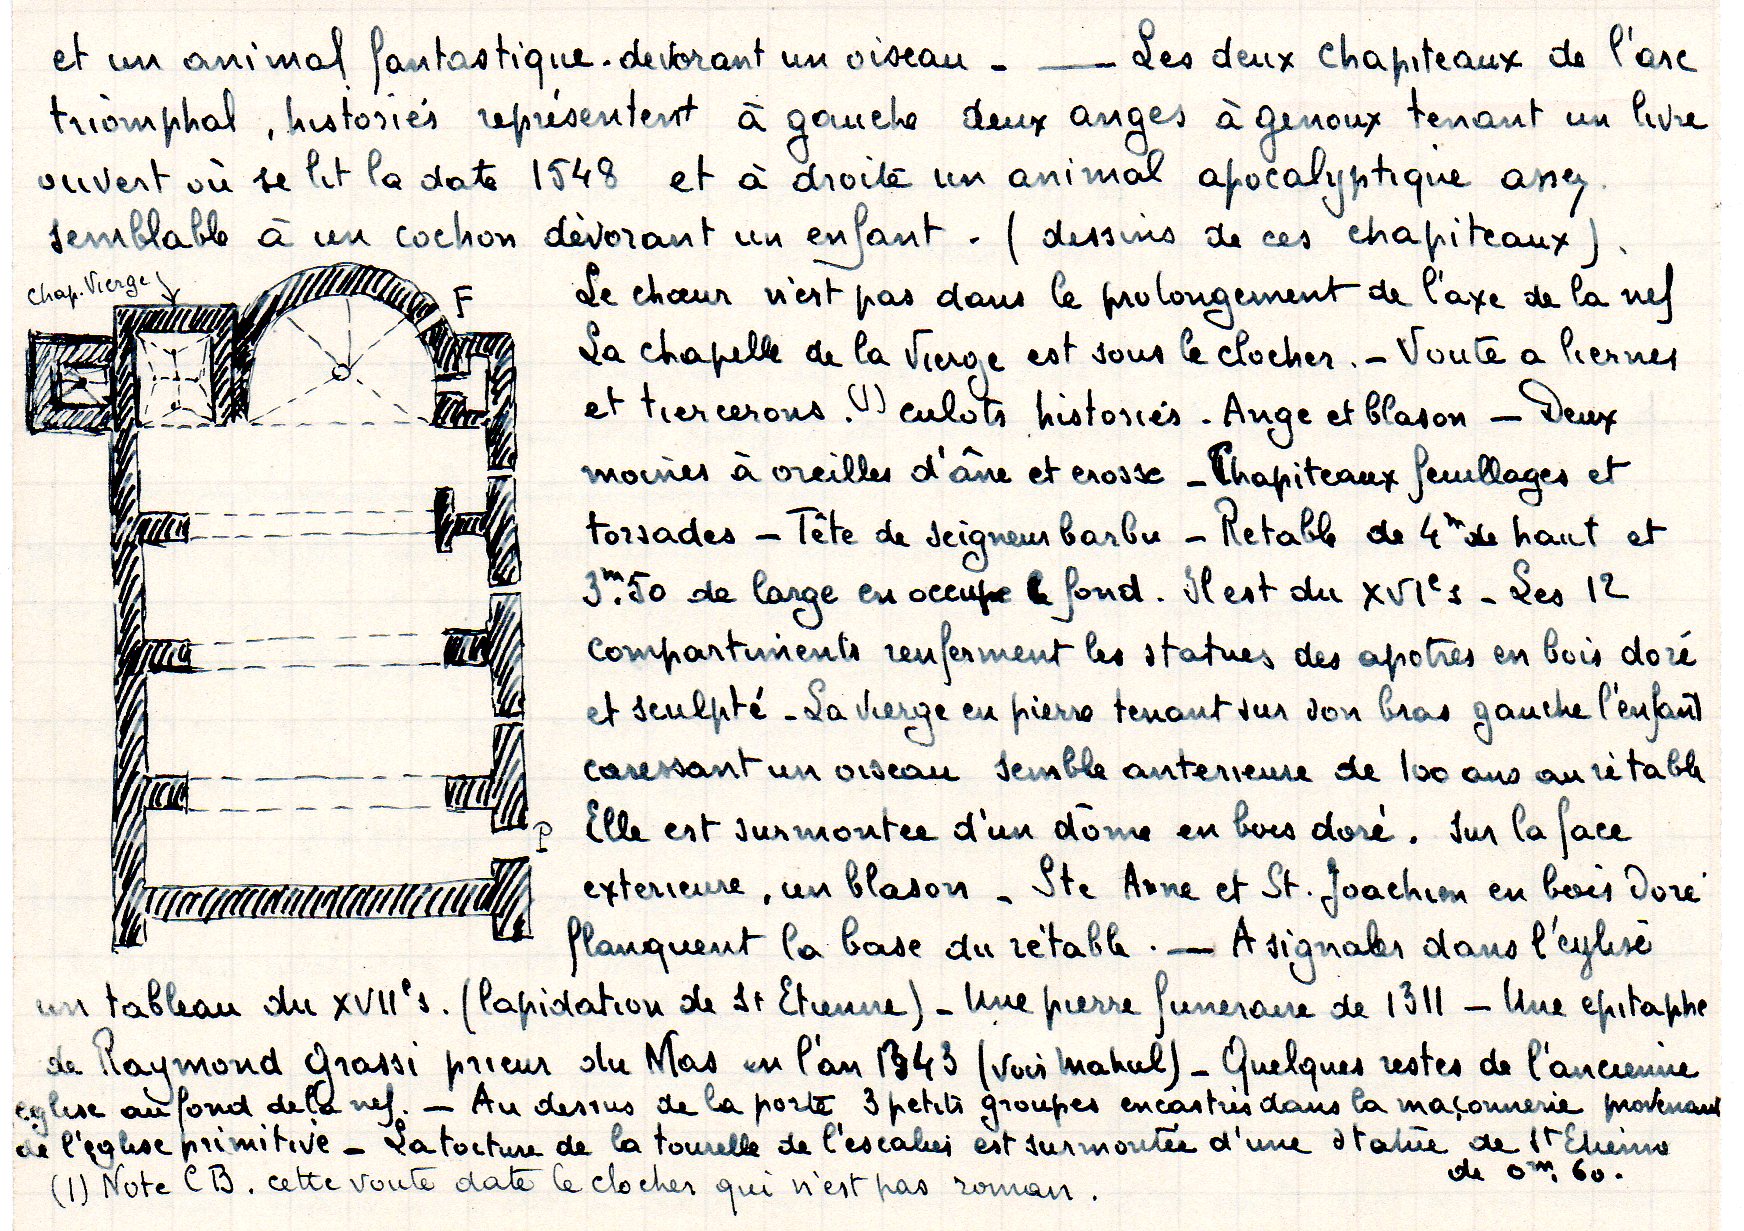 et un animal fantastique. devorant un oiseau - — Les deux chapiteaux de l'arc
triomphal, historiés représentent à gauche deux anges à genoux tenant un livre
ouvert où se lit la date 1548 et à droite un animal apocalyptique assez
semblable à un cochon dévorant un enfant. (dessins de ces chapiteaux).
chap. Vierge
F
Le chœur n'est pas dans le prolongement de l'axe de la nef
La chapelle de la Vierge est sous le clocher. - Voute a liernes
et tiercerons. (1) culots historiés. Ange et blason — Deux
moines à oreilles d'âne et crosse - Chapiteaux feuillages et
torsades - Tête de seigneur barbu - Retable de 4m de haut et
3m.50 de large en occupe le fond. Il est du XVIe s - Les 12
compartiments renferment les statues des apotres en bois doré
et sculpté - La vierge en pierre tenant sur son bras gauche l'enfant
caressant un oiseau semble anterieure de 100 ans au rétable
Elle est surmontee d'un dôme en bois doré. Sur la face
P
exterieure, un blason - Ste Anne et St. Joachim en bois Doré
flanquent la base du rétable. — A signaler dans l'eglise
un tableau du XVIIe s. (lapidation de St Etienne) - Une pierre funeraire de 1311 - Une epitaphe
de Raymond Grassi prieur du Mas en l'an 1343 (voir Mahul) - Quelques restes de l'ancienne
eglise au fond de la nef. — Au dessus de la porte 3 petits groupes encastrés dans la maçonnerie provenant
de l'église primitive - La toiture de la tourelle de l'escalier est surmontée d'une statue de St Etienne
de 0m.60.
(1) Note CB. cette voute date le clocher qui n'est pas roman.